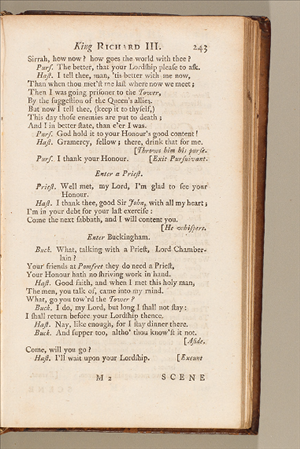 King RICHARD III. 243
Sirrah, how now? how goes the world with thee?
Purſ. The better, that your Lordſhip pleaſe to aſk.
Haſt. I tell thee, man, 'tis better with me now,
Than when thou met'ſt me laſt where now we meet;
Then I was going priſoner to the Tower,
By the ſuggeſtion of the Queen's allies.
But now I tell thee, (keep it to thyſelf,)
This day thoſe enemies are put to death;
And I in better ſtate, than e'er I was.
Purſ. God hold it to your Honour's good content!
Haſt. Gramercy, fellow; there, drink that for me.
[Throws him his purſe.
Purſ. I thank your Honour. [Exit Purſuivant.
Enter a Prieſt.
Prieſt. Well met, my Lord, I'm glad to ſee your
Honour.
Haſt. I thank thee, good Sir John, with all my heart;
I'm in your debt for your laſt exerciſe:
Come the next ſabbath, and I will content you.
[He whiſpers.
Enter Buckingham.
Buck. What, talking with a Prieſt, Lord Chamber-
lain?
Your friends at Pomfret they do need a Prieſt,
Your Honour hath no ſhriving work in hand.
Haſt. Good faith, and when I met this holy man,
The men, you talk of, came into my mind.
What, go you tow'rd the Tower?
Buck. I do, my Lord, but long I ſhall not ſtay:
I ſhall return before your Lordſhip thence.
Haſt. Nay, like enough, for I ſtay dinner there.
Buck. And ſupper too, altho' thou know'ſt it not.
[Aſide.
Come, will you go?
Haſt. I'll wait upon your Lordſhip. [Exeunt
M 2 SCENE